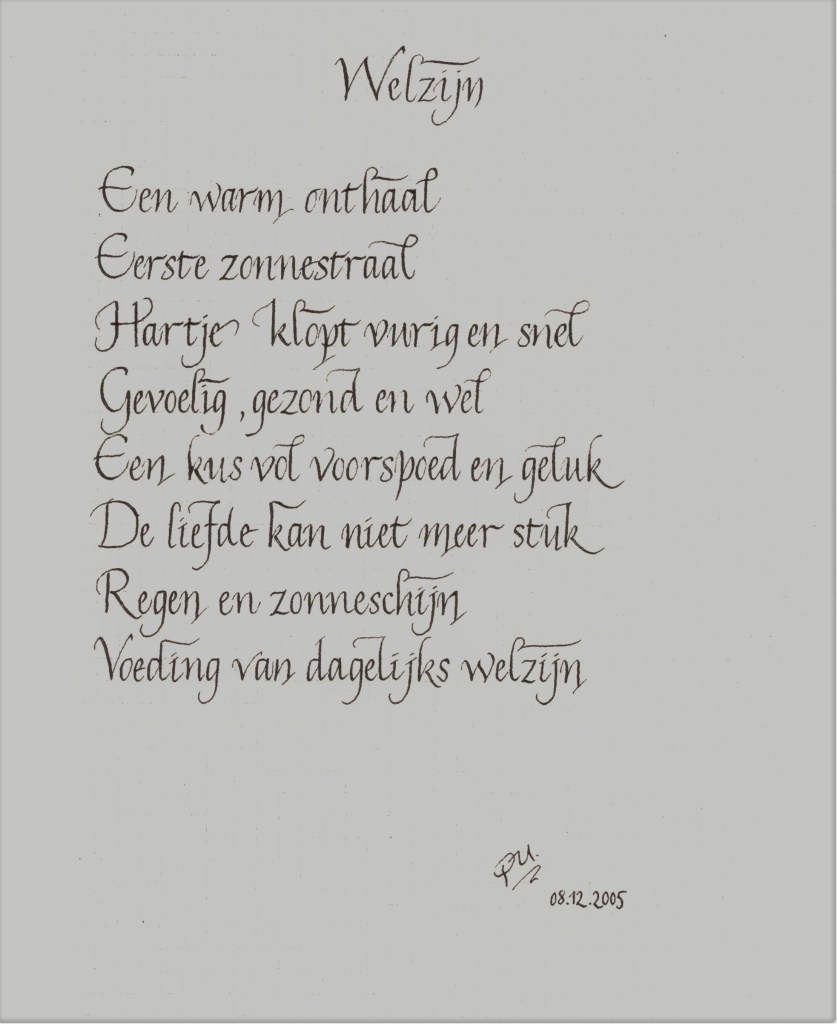 Welzijn
Een warm onthaal
Eerste zonnestraal
Hartje klopt vurig en snel
Gevoelig, gezond en wel
Een kus vol voorspoed en geluk
De liefde kan niet meer stuk
Regen en zonneschijn
Voeding van dagelijks welzijn
08.12.2005